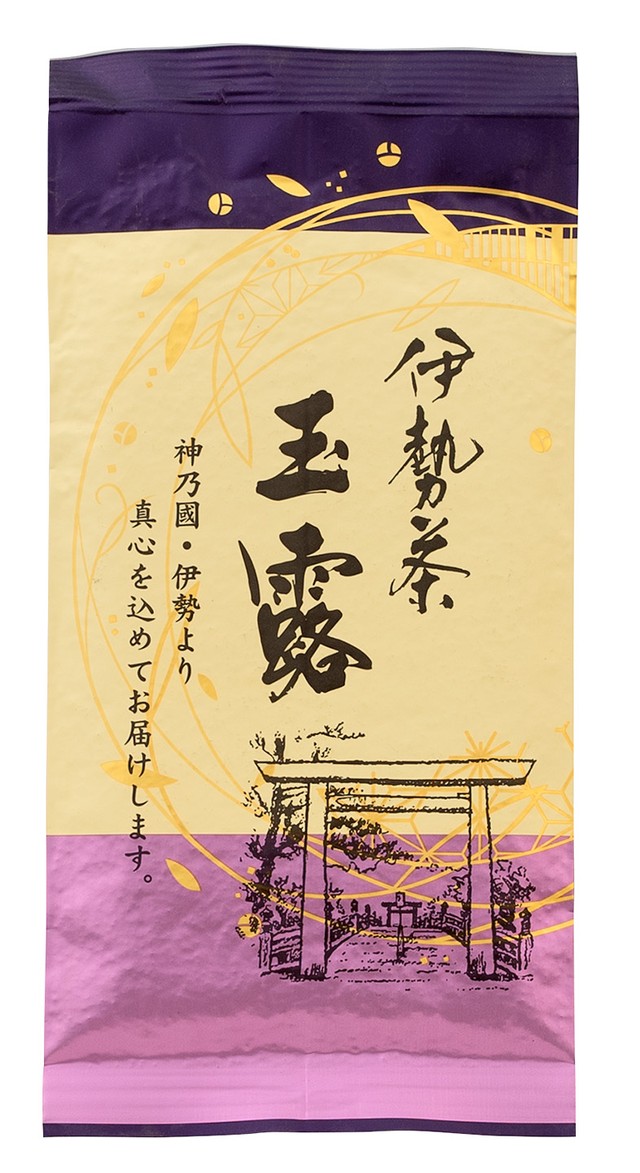 伊勢茶
玉露
神乃國・伊勢より
真心を込めてお届けします。